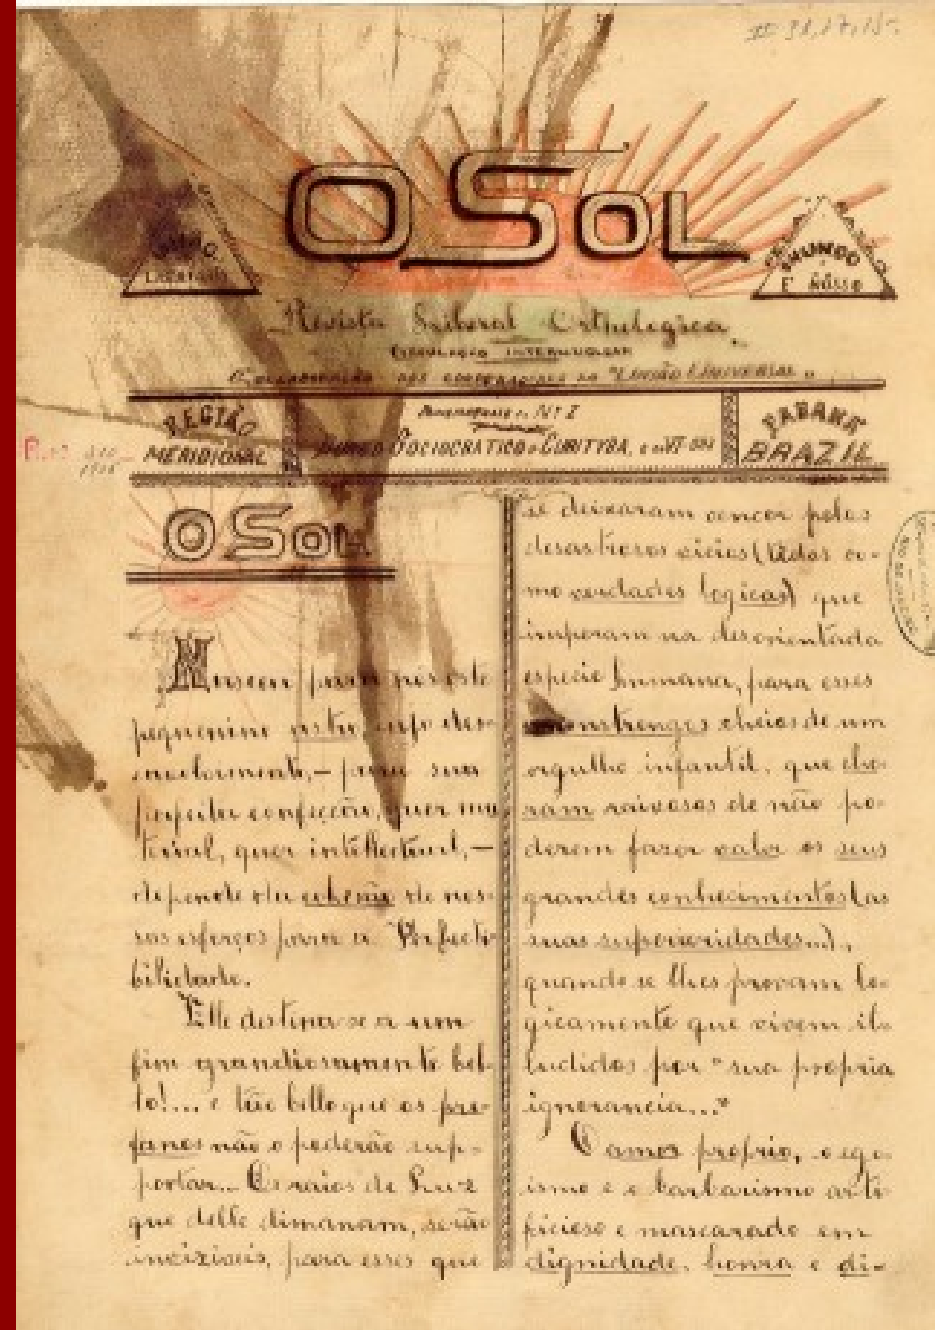 O SOL
UNIÃO
MUNDO
É NÓSSO
RAZÃO
Revista Orthologica
CIRCULAÇÃO
"UNIÃO UNIVERSAL"
REGIÃO
MERIDIONAL
Nº I
SOCIOCRATICO CURITYBA,
PARANÁ
BRAZIL
O SOL
Nasceu para nós este
pequenino astro, cujo des-
envolvimento, — para sua
perfeita confecção, quer ma-
terial, quer intellectual, —
depende da cohesão de nos-
sos esforços para a Perfecti-
bilidade.
Elle destina-se a um
fim grandiosamente bel-
lo!... e tão bello que os pro-
fanos não o poderão sup-
portar... Os raios de Luz
que delle dimanam, serão
inviziveis, para esses que
se deixaram vencer pelos
desastrosos vicios (tidos co-
mo verdades logicas) que
imperam na desorientada
especie humana, para esses
monstrengos cheios de um
orgulho infantil, que cho-
ram raivosos de não po-
derem fazer valer os seus
grandes conhecimentos (as
suas superioridades...),
quando se lhes provam lo-
gicamente que vivem il-
ludidos por "sua propria
ignorancia..."
O amor proprio, o ego-
ismo e o barbarismo arti-
ficioso e mascarado em
dignidade, honra e di-